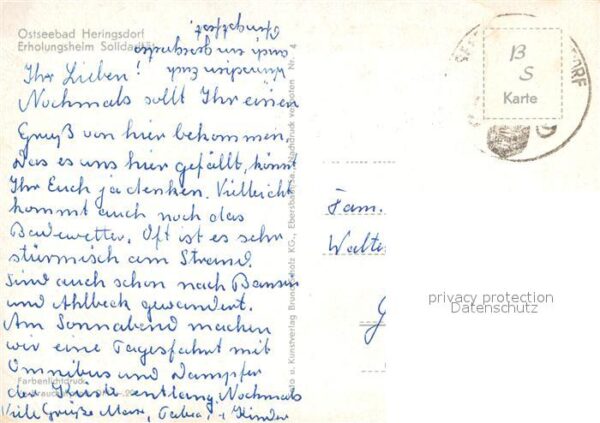 Ostseebad Heringsdorf
Erholungsheim Solidarität
Ihr Lieben!
Nochmals sollt Ihr einen
Gruß von hier bekommen
Das es uns hier gefällt, könnt
Ihr Euch ja denken. Vielleicht
kommt auch noch das
Badewetter. Oft ist es sehr
stürmisch am Strand.
Sind auch schon nach Bansin
und Ahlbeck gewandert.
Am Sonnabend machen
wir eine Tagesfahrt mit
Omnibus und Dampfer
der Küste entlang. Nochmals
Viele Grüße Max, u. Kinder
Farbenlichtdruck
Foto u. Kunstverlag KG., Nachdruck verboten Nr. 4
B
S
Karte
DORF
Fam.
Walte
G
privacy protection
Datenschutz